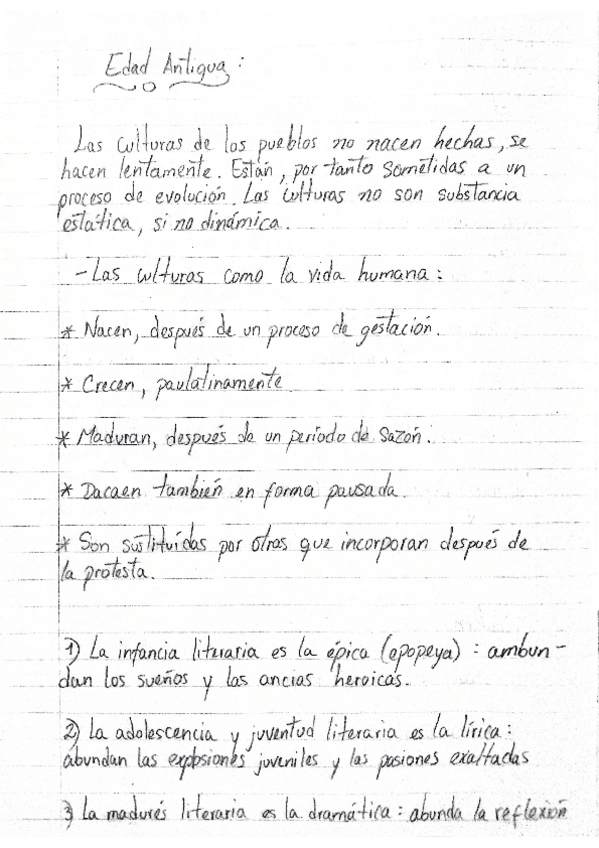 Edad Antigua:
Las culturas de los pueblos no nacen hechas, se
hacen lentamente. Están, por tanto sometidas a un
proceso de evolución. Las culturas no son substancia
estática, si no dinámica.
- Las culturas como la vida humana:
* Nacen, después de un proceso de gestación.
* Crecen, paulatinamente
* Maduran, después de un período de sazón.
* Dacaen también en forma pausada.
* Son sustituídas por otras que incorporan después de
la protesta.
1) La infancia literaria es la épica (epopeya): ambun-
dan los sueños y las ancias heroicas.
2) La adolescencia y juventud literaria es la lírica:
abundan las explosiones juveniles y las pasiones exaltadas
3) La madurés literaria es la dramática: abunda la reflexión